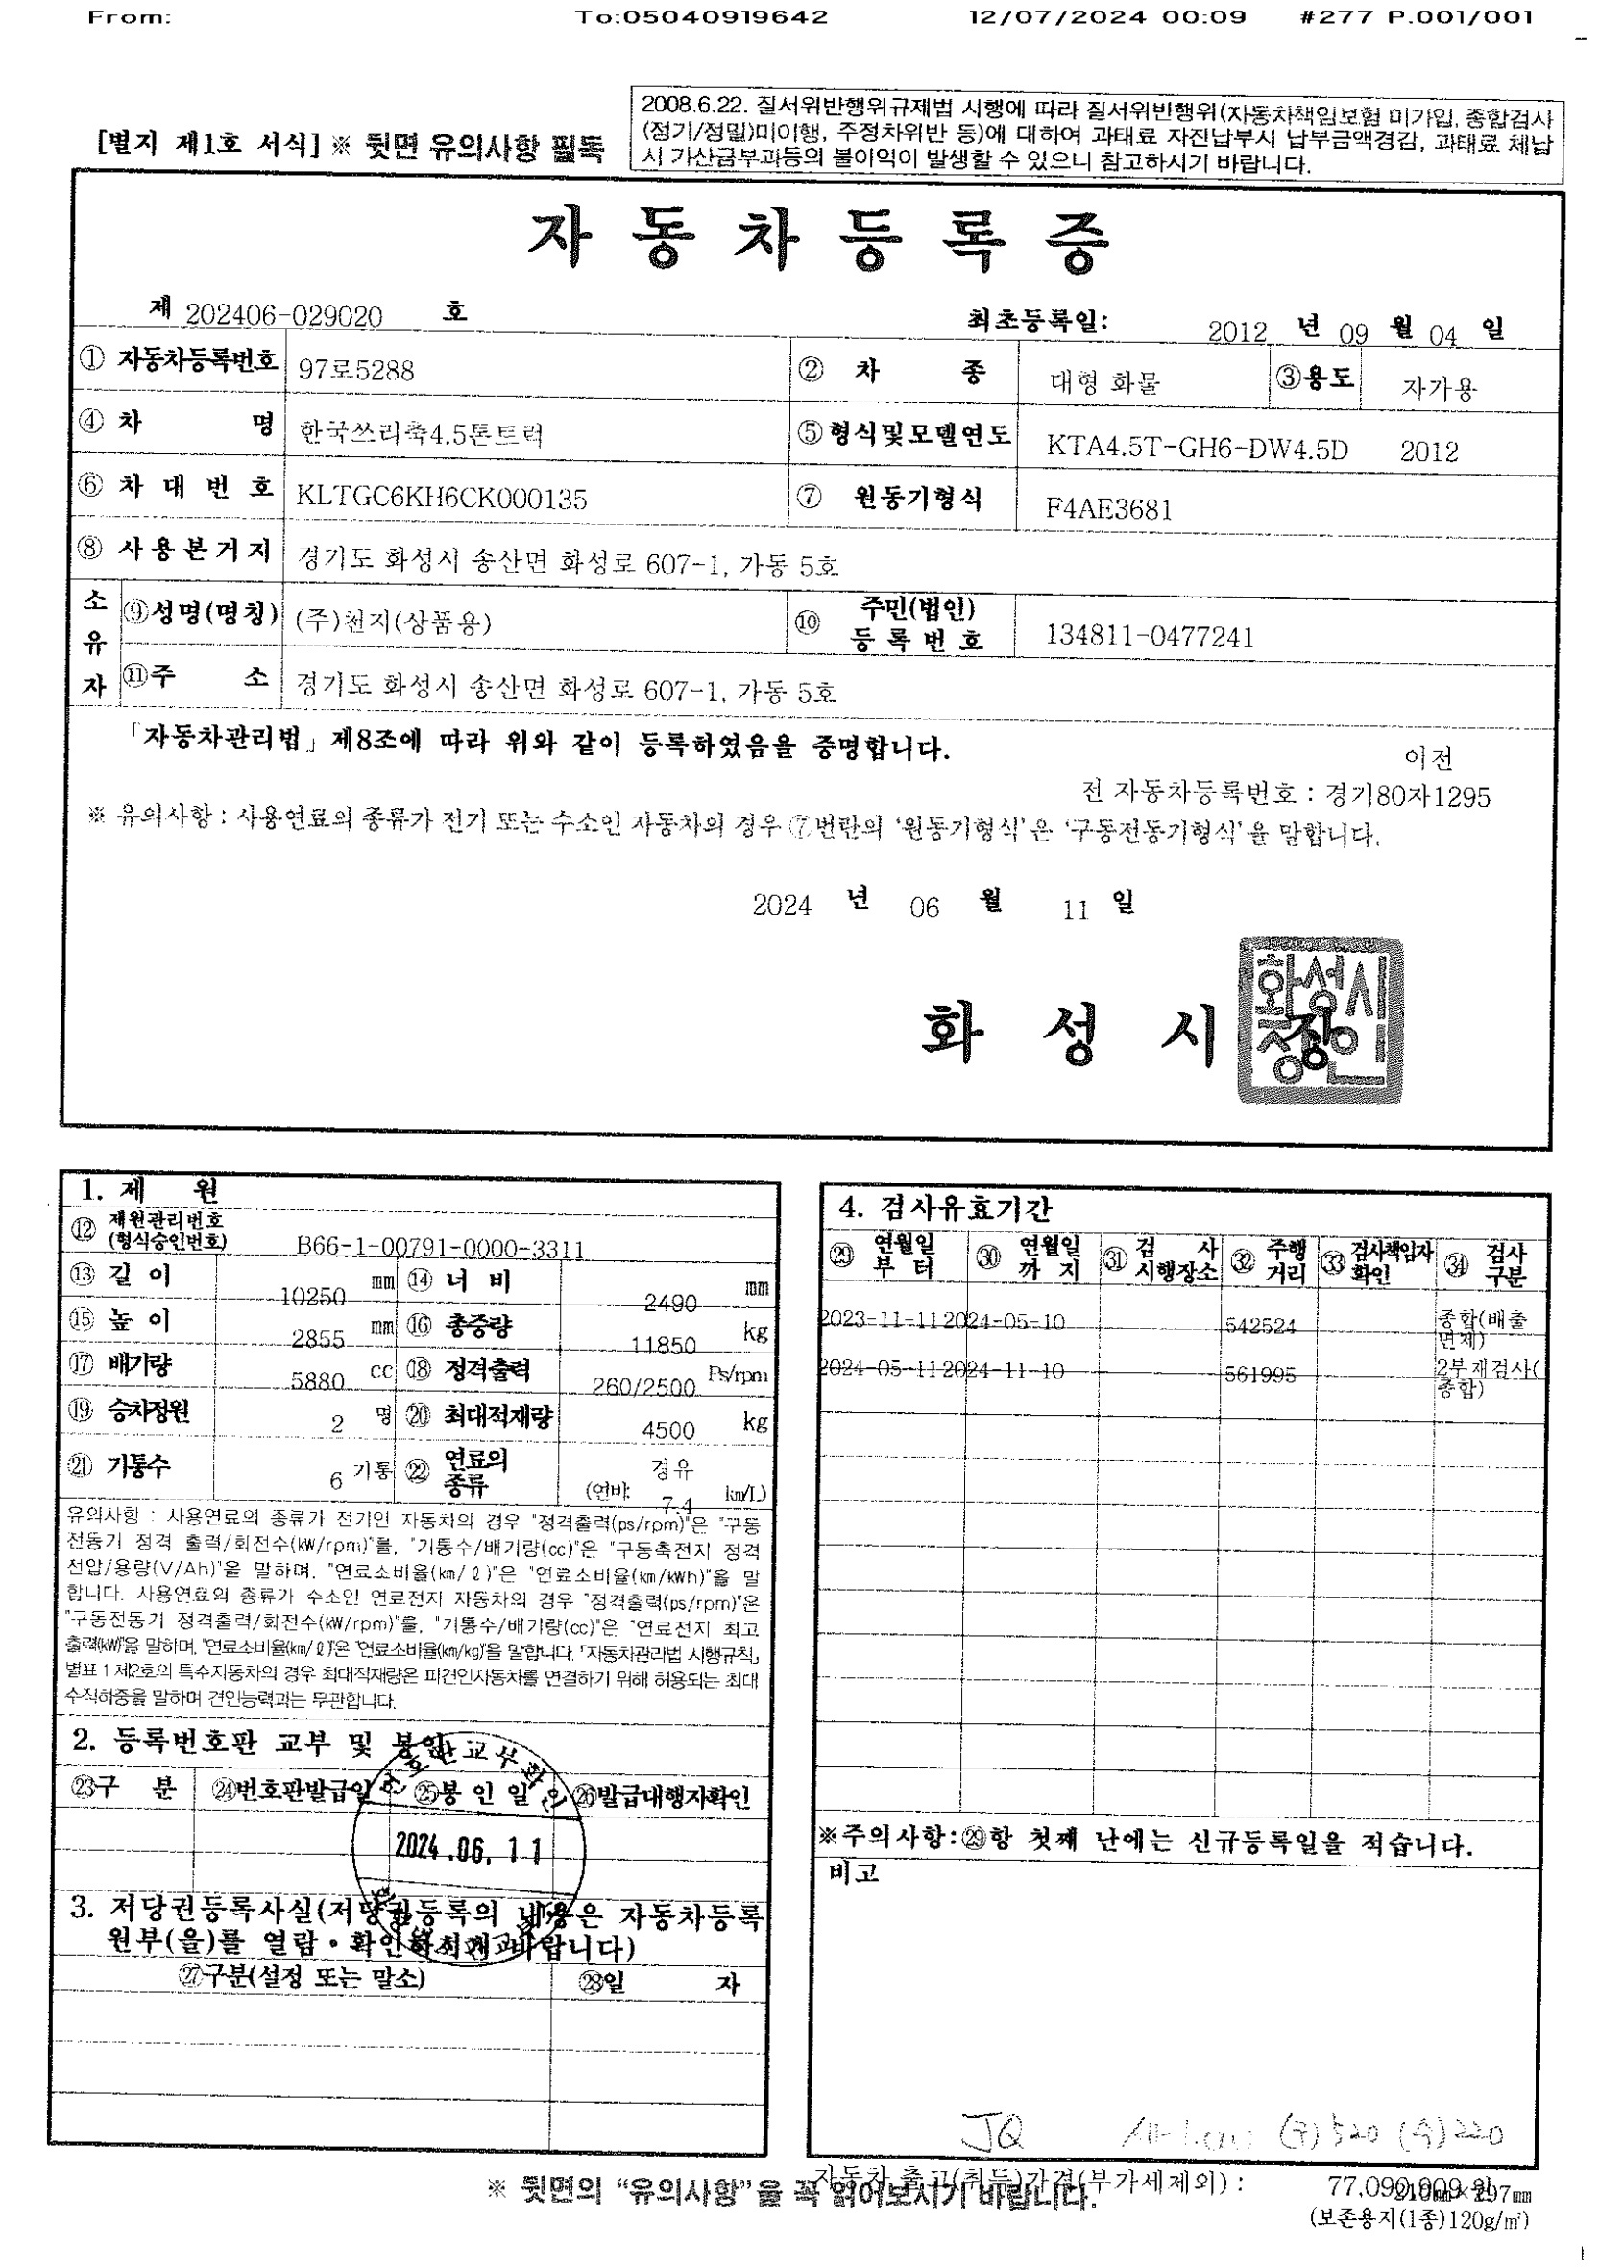 From: To:05040919642 12/07/2024 00:09 #277 P.001/001
2008.6.22. 질서위반행위규제법 시행에 따라 질서위반행위(자동차책임보험 미가입, 종합검사
(정기/정밀)미이행, 주정차위반 등)에 대하여 과태료 자진납부시 납부금액경감, 과태료 체납
시 가산금부과등의 불이익이 발생할 수 있으니 참고하시기 바랍니다.
[별지 제1호 서식] ※ 뒷면 유의사항 필독
자동차등록증
제 202406-029020 호 최초등록일: 2012 년 09 월 04 일
① 자동차등록번호 97로5288 ② 차 종 대형 화물 ③용도 자가용
④ 차 명 한국쓰리축4.5톤트럭 ⑤ 형식및모델연도 KTA4.5T-GH6-DW4.5D 2012
⑥ 차 대 번 호 KLTGC6KH6CK000135 ⑦ 원동기형식 F4AE3681
⑧ 사 용 본 거 지 경기도 화성시 송산면 화성로 607-1, 가동 5호
소유자 ⑨성명(명칭) (주)천지(상품용) ⑩ 주민(법인) 등록번호 134811-0477241
⑪주 소 경기도 화성시 송산면 화성로 607-1, 가동 5호
「자동차관리법」 제8조에 따라 위와 같이 등록하였음을 증명합니다.
이전
전 자동차등록번호 : 경기80자1295
※ 유의사항 : 사용연료의 종류가 전기 또는 수소인 자동차의 경우 ⑦번란의 '원동기형식'은 '구동전동기형식'을 말합니다.
2024 년 06 월 11 일
화 성 시 장
화성시
장인
1. 제 원
⑫ 제원관리번호
(형식승인번호) B66-1-00791-0000-3311
⑬ 길 이 10250 mm ⑭ 너 비 2490 mm
⑮ 높 이 2855 mm ⑯ 총중량 11850 kg
⑰ 배기량 5880 cc ⑱ 정격출력 260/2500 Ps/rpm
⑲ 승차정원 2 명 ⑳ 최대적재량 4500 kg
㉑ 기통수 6 기통 ㉒ 연료의 종류 경유
(연비: 7.4 km/L)
유의사항 : 사용연료의 종류가 전기인 자동차의 경우 "정격출력(ps/rpm)"은 "구동
전동기 정격 출력/회전수(kW/rpm)"를, "기통수/배기량(cc)"은 "구동축전지 정격
전압/용량(V/Ah)"을 말하며, "연료소비율(km/ℓ)"은 "연료소비율(km/kWh)"을 말
합니다. 사용연료의 종류가 수소인 연료전지 자동차의 경우 "정격출력(ps/rpm)"은
"구동전동기 정격출력/회전수(kW/rpm)"를, "기통수/배기량(cc)"은 "연료전지 최고
출력(kW)"을 말하며, "연료소비율(km/ℓ)"은 "연료소비율(km/kg)"을 말합니다. 「자동차관리법 시행규칙」
별표 1 제2호의 특수자동차의 경우 최대적재량은 피견인자동차를 연결하기 위해 허용되는 최대
수직하중을 말하며 견인능력과는 무관합니다.
2. 등록번호판 교부 및 봉인
㉓구 분 ㉔번호판발급일 ㉕봉 인 일 ㉖발급대행자확인
번호판교부확인
2024.06.11
3. 저당권등록사실(저당권등록의 내용은 자동차등록
원부(을)를 열람・확인하시기 바랍니다)
㉗구분(설정 또는 말소) ㉘일 자
4. 검사유효기간
㉙ 연월일 부터 ㉚ 연월일 까지 ㉛ 검 사 시행장소 ㉜ 주행 거리 ㉝ 검사책임자 확인 ㉞ 검사 구분
2023-11-11 2024-05-10 542524 종합(배출
면제)
2024-05-11 2024-11-10 561995 2부재검사(
종합)
※주의사항:㉙항 첫째 난에는 신규등록일을 적습니다.
비고
JQ (주)520 (수)220
※ 뒷면의 "유의사항"을 꼭 읽어보시기 바랍니다.
자동차 출고(취득)가격(부가세제외) : 77,090,909 원
210mm×297mm
(보존용지(1종)120g/㎡)